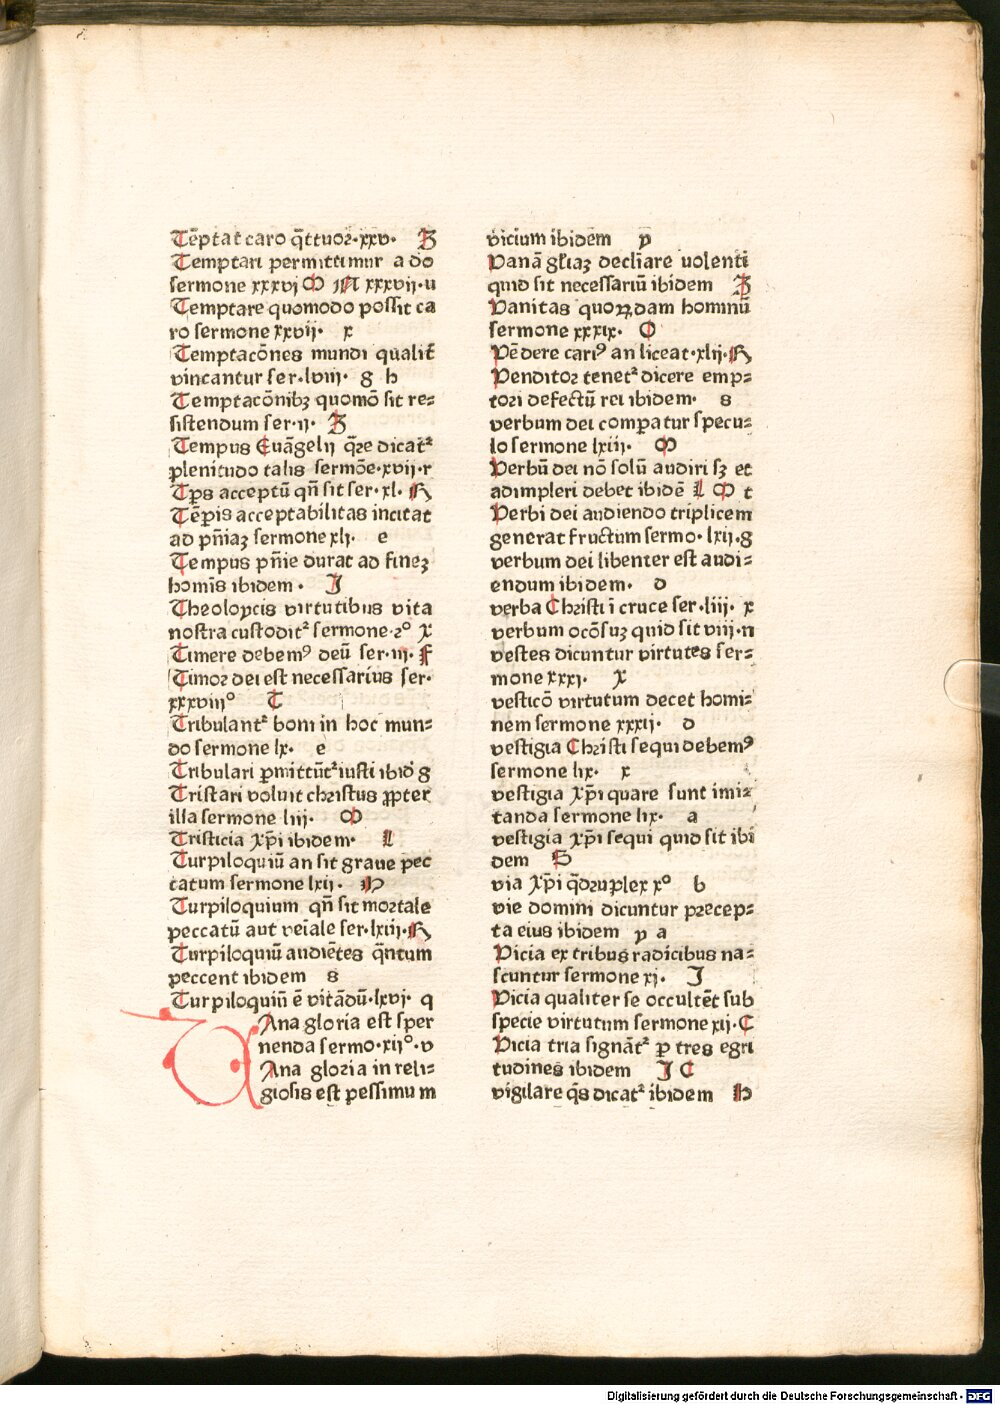 Tēptat caro q̄ttuoꝛ·xxv· B
Temptari permittimur a do
sermone xxxvj O N xxxvij·u
Temptare quomodo possit ca
ro sermone xxvij· x
Temptacōnes mundi qualit̄
vincantur ser·lviij· g h
Temptacōnibꝫ quomō sit re⸗
sistendum ser·ij· B
Tempus Euāgelij q̄re dicat᷑
plenitudo talis sermōe·xvij·r
Tp̄s acceptū qn̄ sit ser·xl· K
Tēp̄is acceptabilitas incitat
ad pn̄iaꝫ sermone xlj· e
Tempus pn̄ie durat ad fineꝫ
homīs ibidem· I
Theoloycis virtutibus vita
nostra custodit᷑ sermone·2° X
Timere debemꝰ deū ser·iij· F
Timoꝛ dei est necessarius ser·
xxxviij° T
Tribulant᷑ boni in hoc mun⸗
do sermone lx· e
Tribulari ꝑmittūt᷑ iusti ibid̄ g
Tristari voluit christus ꝓpter
illa sermone liij· O
Tristicia xp̄i ibidem· L
Turpiloquiū an sit graue pec
catum sermone lxij· N
Turpiloquium qn̄ sit moꝛtale
peccatū aut veīale ser·lxiij·K
Turpiloquiū audiētes q̄ntum
peccent ibidem s
Turpiloquiū ē vitādū·lxvj· q
VAna gloria est sper
nenda sermo·xij°·v
Ana gloꝛia in reli⸗
giosis est pessimum
vicium ibidem p
Vanā gl̄iaꝫ decliāre uolenti
quid sit necessariū ibidem B
Vanitas quoꝝdam hominū
sermone xxxix· O
Vēdere cariꝰ an liceat·xlij·K
Venditoꝛ tenet᷑ dicere emp⸗
tori defectū rei ibidem· s
verbum dei compatur specu⸗
lo sermone lxiij· O
Verbū dei nō solū audiri sꝫ et
adimpleri debet ibidē L O t
Verbi dei audiendo triplicem
generat fructum sermo·lxij·g
verbum dei libenter est audi⸗
endum ibidem· d
verba Christi ī cruce ser·liij· x
verbum ocōsuꝫ quid sit viij·n
vestes dicuntur virtutes ser⸗
mone xxxj· X
vesticō virtutum decet homi⸗
nem sermone xxxij· d
vestigia Christi sequi debemꝰ
sermone lix· x
vestigia xp̄i quare sunt imi⸗
tanda sermone lix· a
vestigia xp̄i sequi quid sit ibi
dem S
via xp̄i q̄dꝛuplex x° b
vie domini dicuntur pꝛecep⸗
ta eius ibidem p a
Vicia ex tribus radicibus na⸗
scuntur sermone xj· I
Vicia qualiter se occultēt sub
specie virtutum sermone xij·C
Vicia tria signāt᷑ ꝑ tres egri
tudines ibidem I C
vigilare q̄s dicat᷑ ibidem h
Digitalisierung gefördert durch die Deutsche Forschungsgemeinschaft - DFG